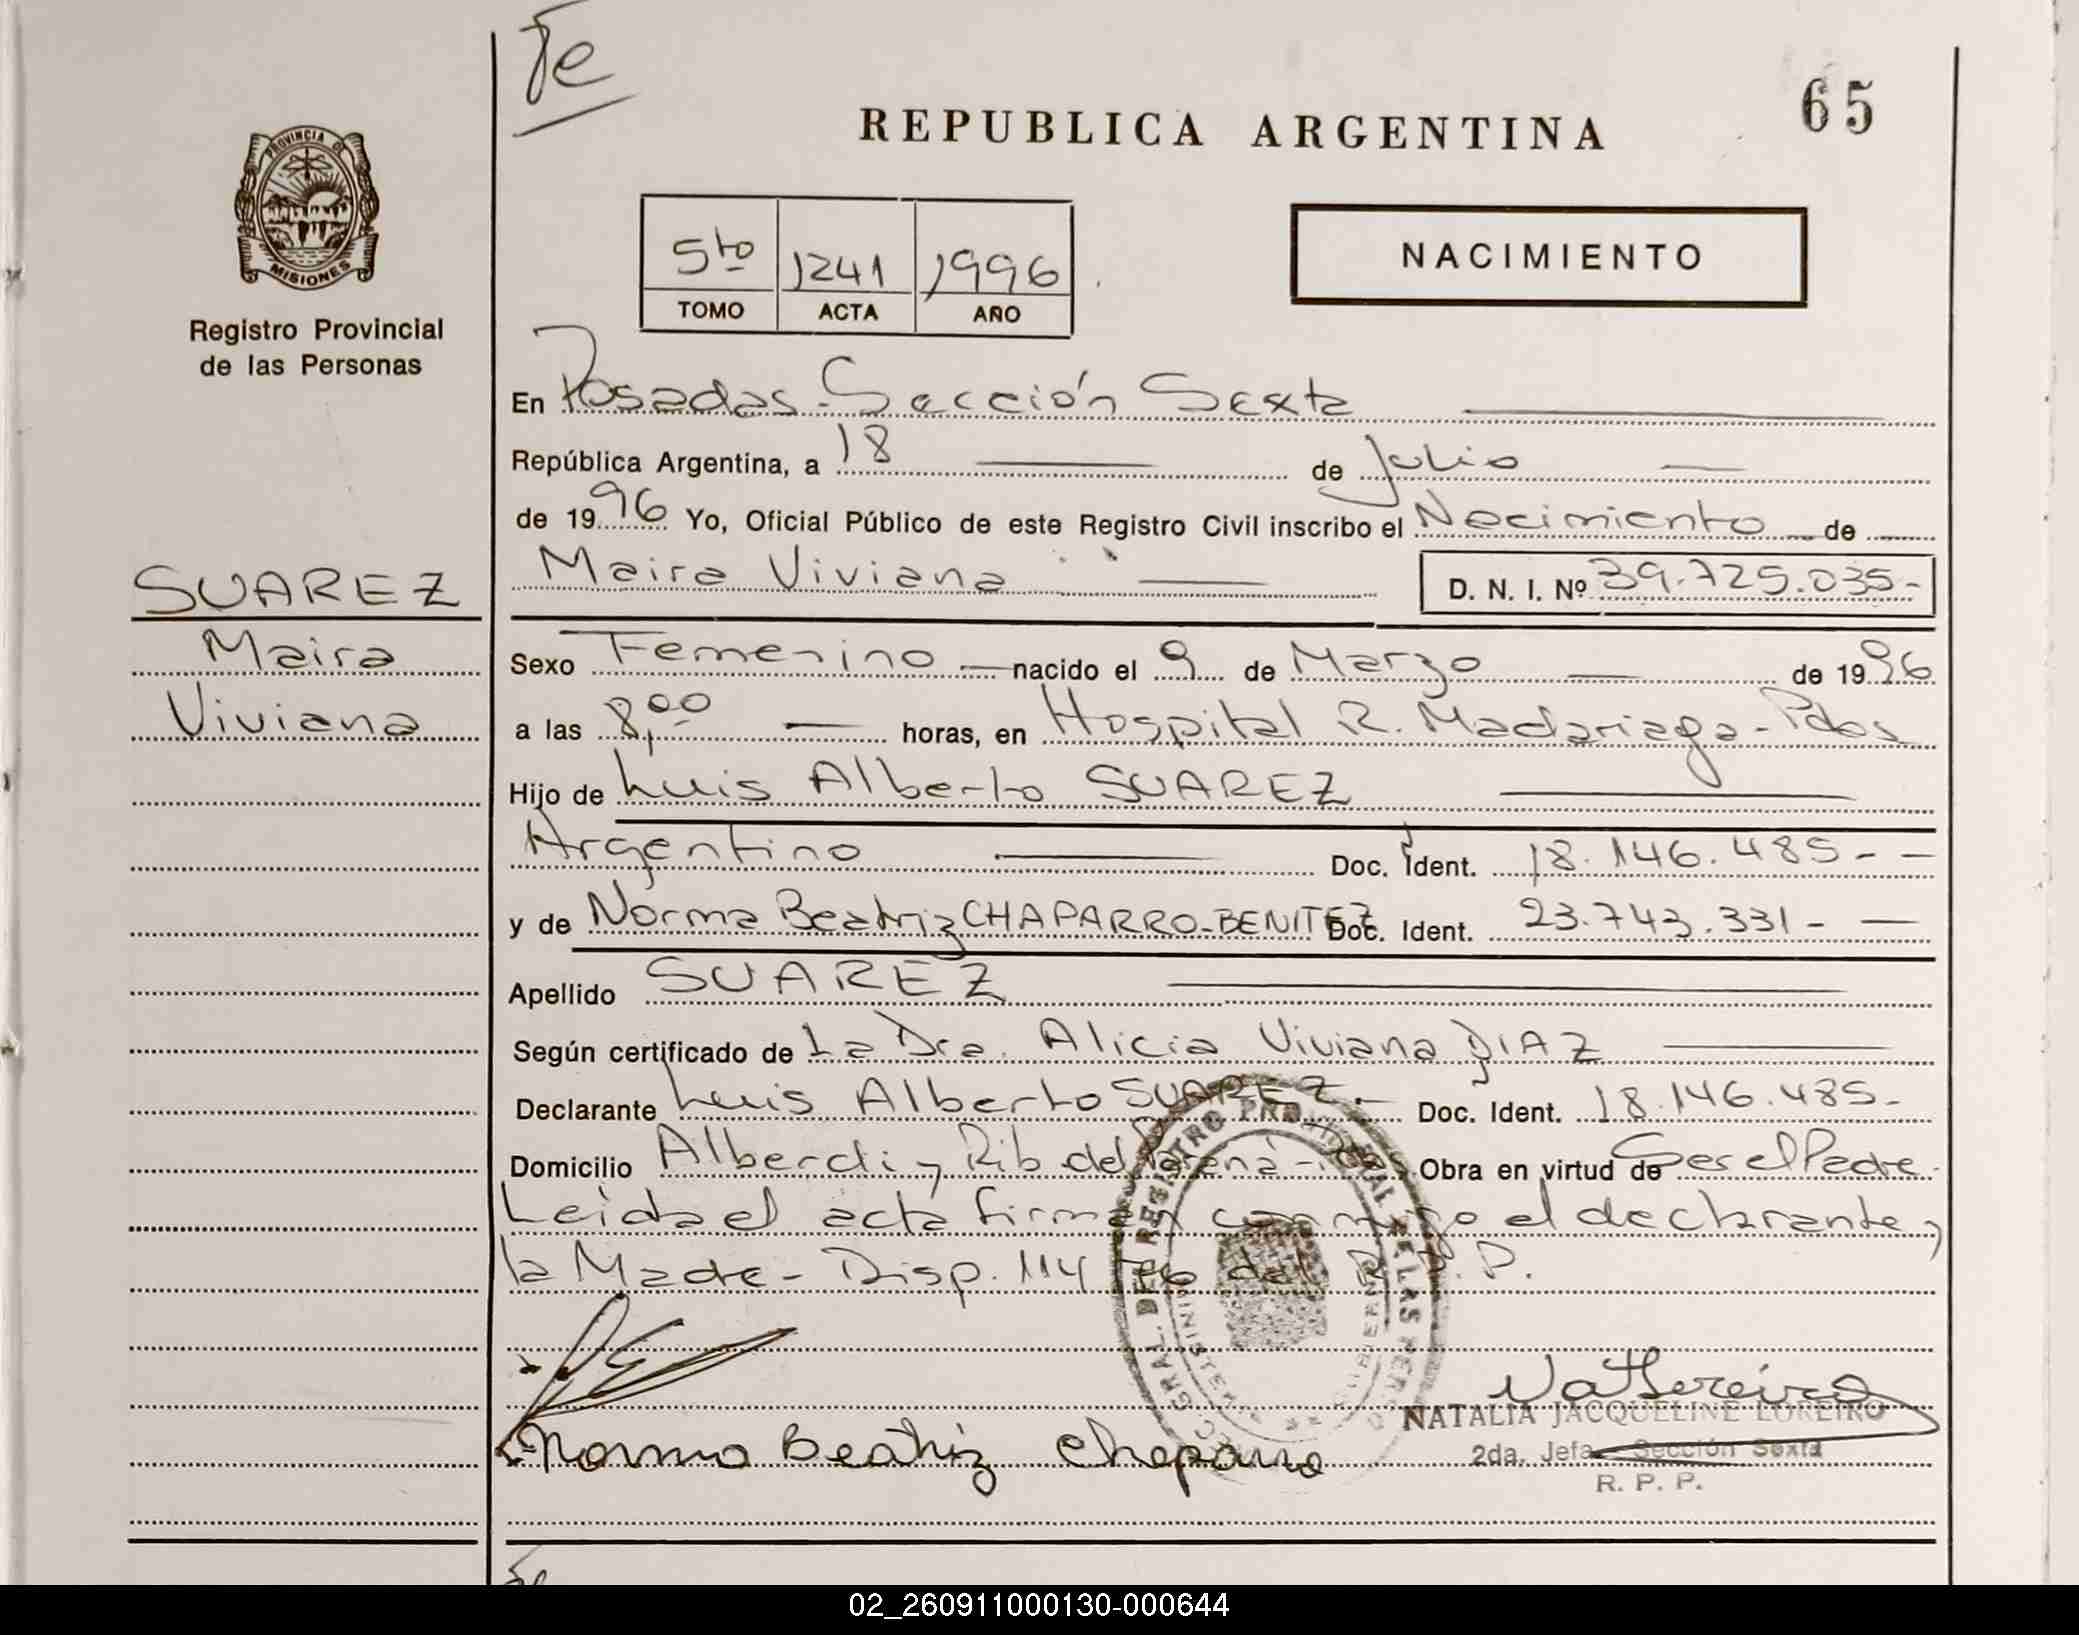 Fe
65
REPUBLICA ARGENTINA
PROVINCIA DE
MISIONES
Registro Provincial
de las Personas
5to 1241 1996
TOMO ACTA AÑO
NACIMIENTO
En Posadas - Sección Sexta
República Argentina, a 18 de Julio
de 1996 Yo, Oficial Público de este Registro Civil inscribo el Nacimiento de
Maira Viviana D. N. I. Nº 39.725.035-
SUAREZ
Maira
Viviana
Sexo Femenino nacido el 9 de Marzo de 1996
a las 8,00 horas, en Hospital R. Madariaga - Pdas
Hijo de Luis Alberto SUAREZ
Argentino Doc. Ident. 18.146.485-
y de Norma Beatriz CHAPARRO-BENITEZ Doc. Ident. 23.743.331-
Apellido SUAREZ
Según certificado de La Dra. Alicia Viviana DIAZ
Declarante Luis Alberto SUAREZ.- Doc. Ident. 18.146.485-
Domicilio Alberdi y Rib del Paraná - Obra en virtud de Ser el Padre.
Leida el acta firman conmigo el declarante y
la Madre - Disp. 114 del R.P.P.
Norma Beatriz Chaparro
NATALIA JACQUELINE LOREIRO
2da. Jefa Sección Sexta
R. P. P.
02_260911000130-000644